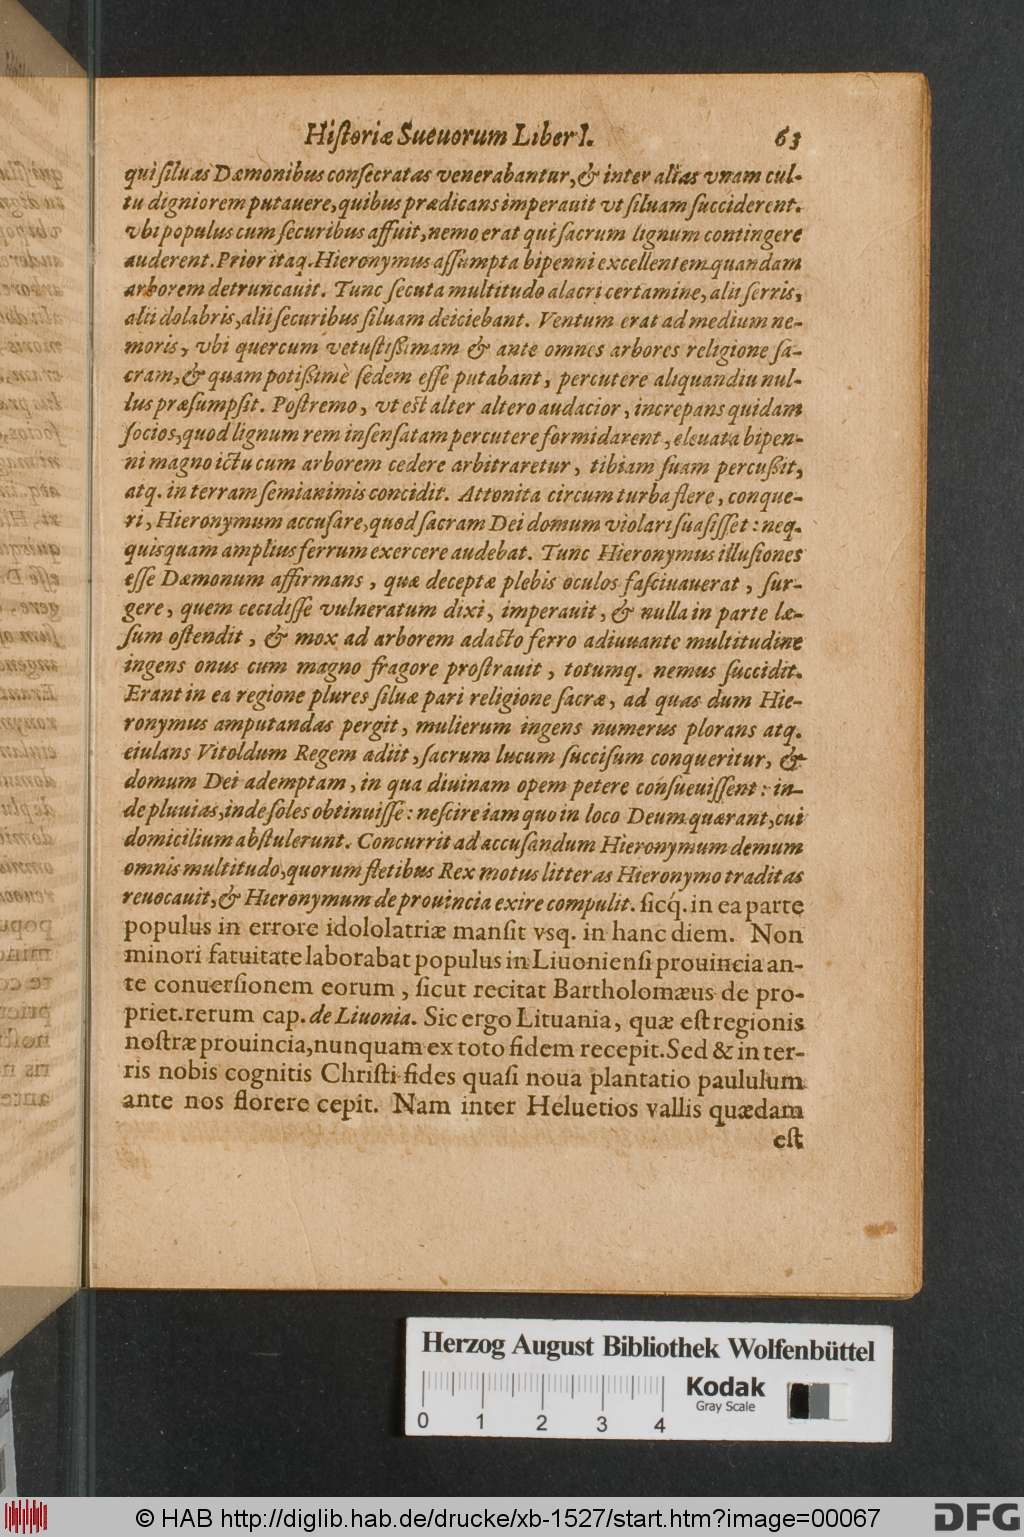 Historiæ Sueuorum Liber I. 63
qui siluas Dæmonibus consecratas venerabantur, & inter alias vnam cul-
tu digniorem putauere, quibus prædicans imperauit vt siluam succiderent.
vbi populus cum securibus affuit, nemo erat qui sacrum lignum contingere
auderent. Prior itaq. Hieronymus assumpta bipenni excellentem quandam
arborem detruncauit. Tunc secuta multitudo alacri certamine, alii serris,
alii dolabris, alii securibus siluam deiciebant. Ventum erat ad medium ne-
moris, vbi quercum vetustissimam & ante omnes arbores religione sa-
cram, & quam potissimè sedem esse putabant, percutere aliquandiu nul-
lus præsumpsit. Postremo, vt est alter altero audacior, increpans quidam
socios, quod lignum rem insensatam percutere formidarent, eleuata bipen-
ni magno ictu cum arborem cedere arbitraretur, tibiam suam percussit,
atq. in terram semianimis concidit. Attonita circum turba flere, conque-
ri, Hieronymum accusare, quod sacram Dei domum violari suasisset: neq.
quisquam amplius ferrum exercere audebat. Tunc Hieronymus illusiones
esse Dæmonum affirmans, quæ deceptæ plebis oculos fascinauerat, sur-
gere, quem cecidisse vulneratum dixi, imperauit, & nulla in parte læ-
sum ostendit, & mox ad arborem adacto ferro adiuuante multitudine
ingens onus cum magno fragore prostrauit, totumq. nemus succidit.
Erant in ea regione plures siluæ pari religione sacræ, ad quas dum Hie-
ronymus amputandas pergit, mulierum ingens numerus plorans atq.
eiulans Vitoldum Regem adiit, sacrum lucum succisum conqueritur, &
domum Dei ademptam, in qua diuinam opem petere consueuissent: in-
de pluuias, inde soles obtinuisse: nescire iam quo in loco Deum quærant, cui
domicilium abstulerunt. Concurrit ad accusandum Hieronymum demum
omnis multitudo, quorum fletibus Rex motus litteras Hieronymo traditas
reuocauit, & Hieronymum de prouincia exire compulit. sicq. in ea parte
populus in errore idololatriæ mansit vsq. in hanc diem. Non
minori fatuitate laborabat populus in Liuoniensi prouincia an-
te conuersionem eorum, sicut recitat Bartholomæus de pro-
priet. rerum cap. de Liuonia. Sic ergo Lituania, quæ est regionis
nostræ prouincia, nunquam ex toto fidem recepit. Sed & in ter-
ris nobis cognitis Christi fides quasi noua plantatio paululum
ante nos florere cepit. Nam inter Heluetios vallis quædam
est
Herzog August Bibliothek Wolfenbüttel
Kodak
Gray Scale
0 1 2 3 4
© HAB http://diglib.hab.de/drucke/xb-1527/start.htm?image=00067
DFG